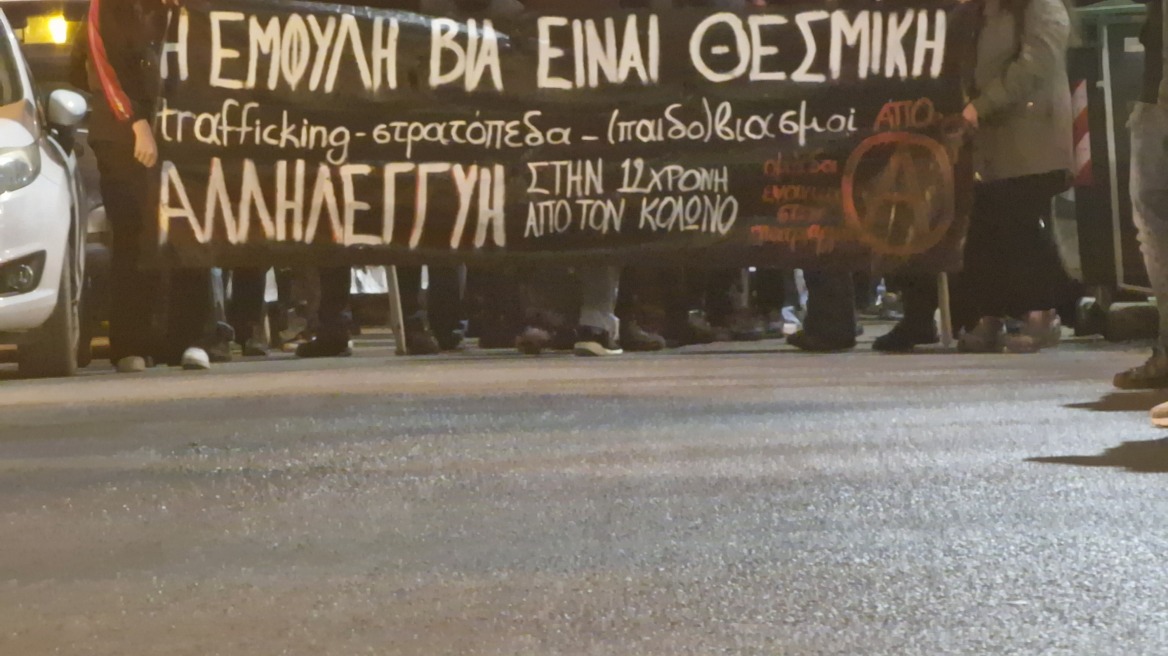 Η ΕΜΦΥΛΗ ΒΙΑ ΕΙΝΑΙ ΘΕΣΜΙΚΗ
trafficking - στρατόπεδα - (παιδο)βιασμοί
ΑΛΛΗΛΕΓΓΥΗ
ΣΤΗΝ 12ΧΡΟΝΗ
ΑΠΟ ΤΟΝ ΚΟΛΩΝΟ
Α